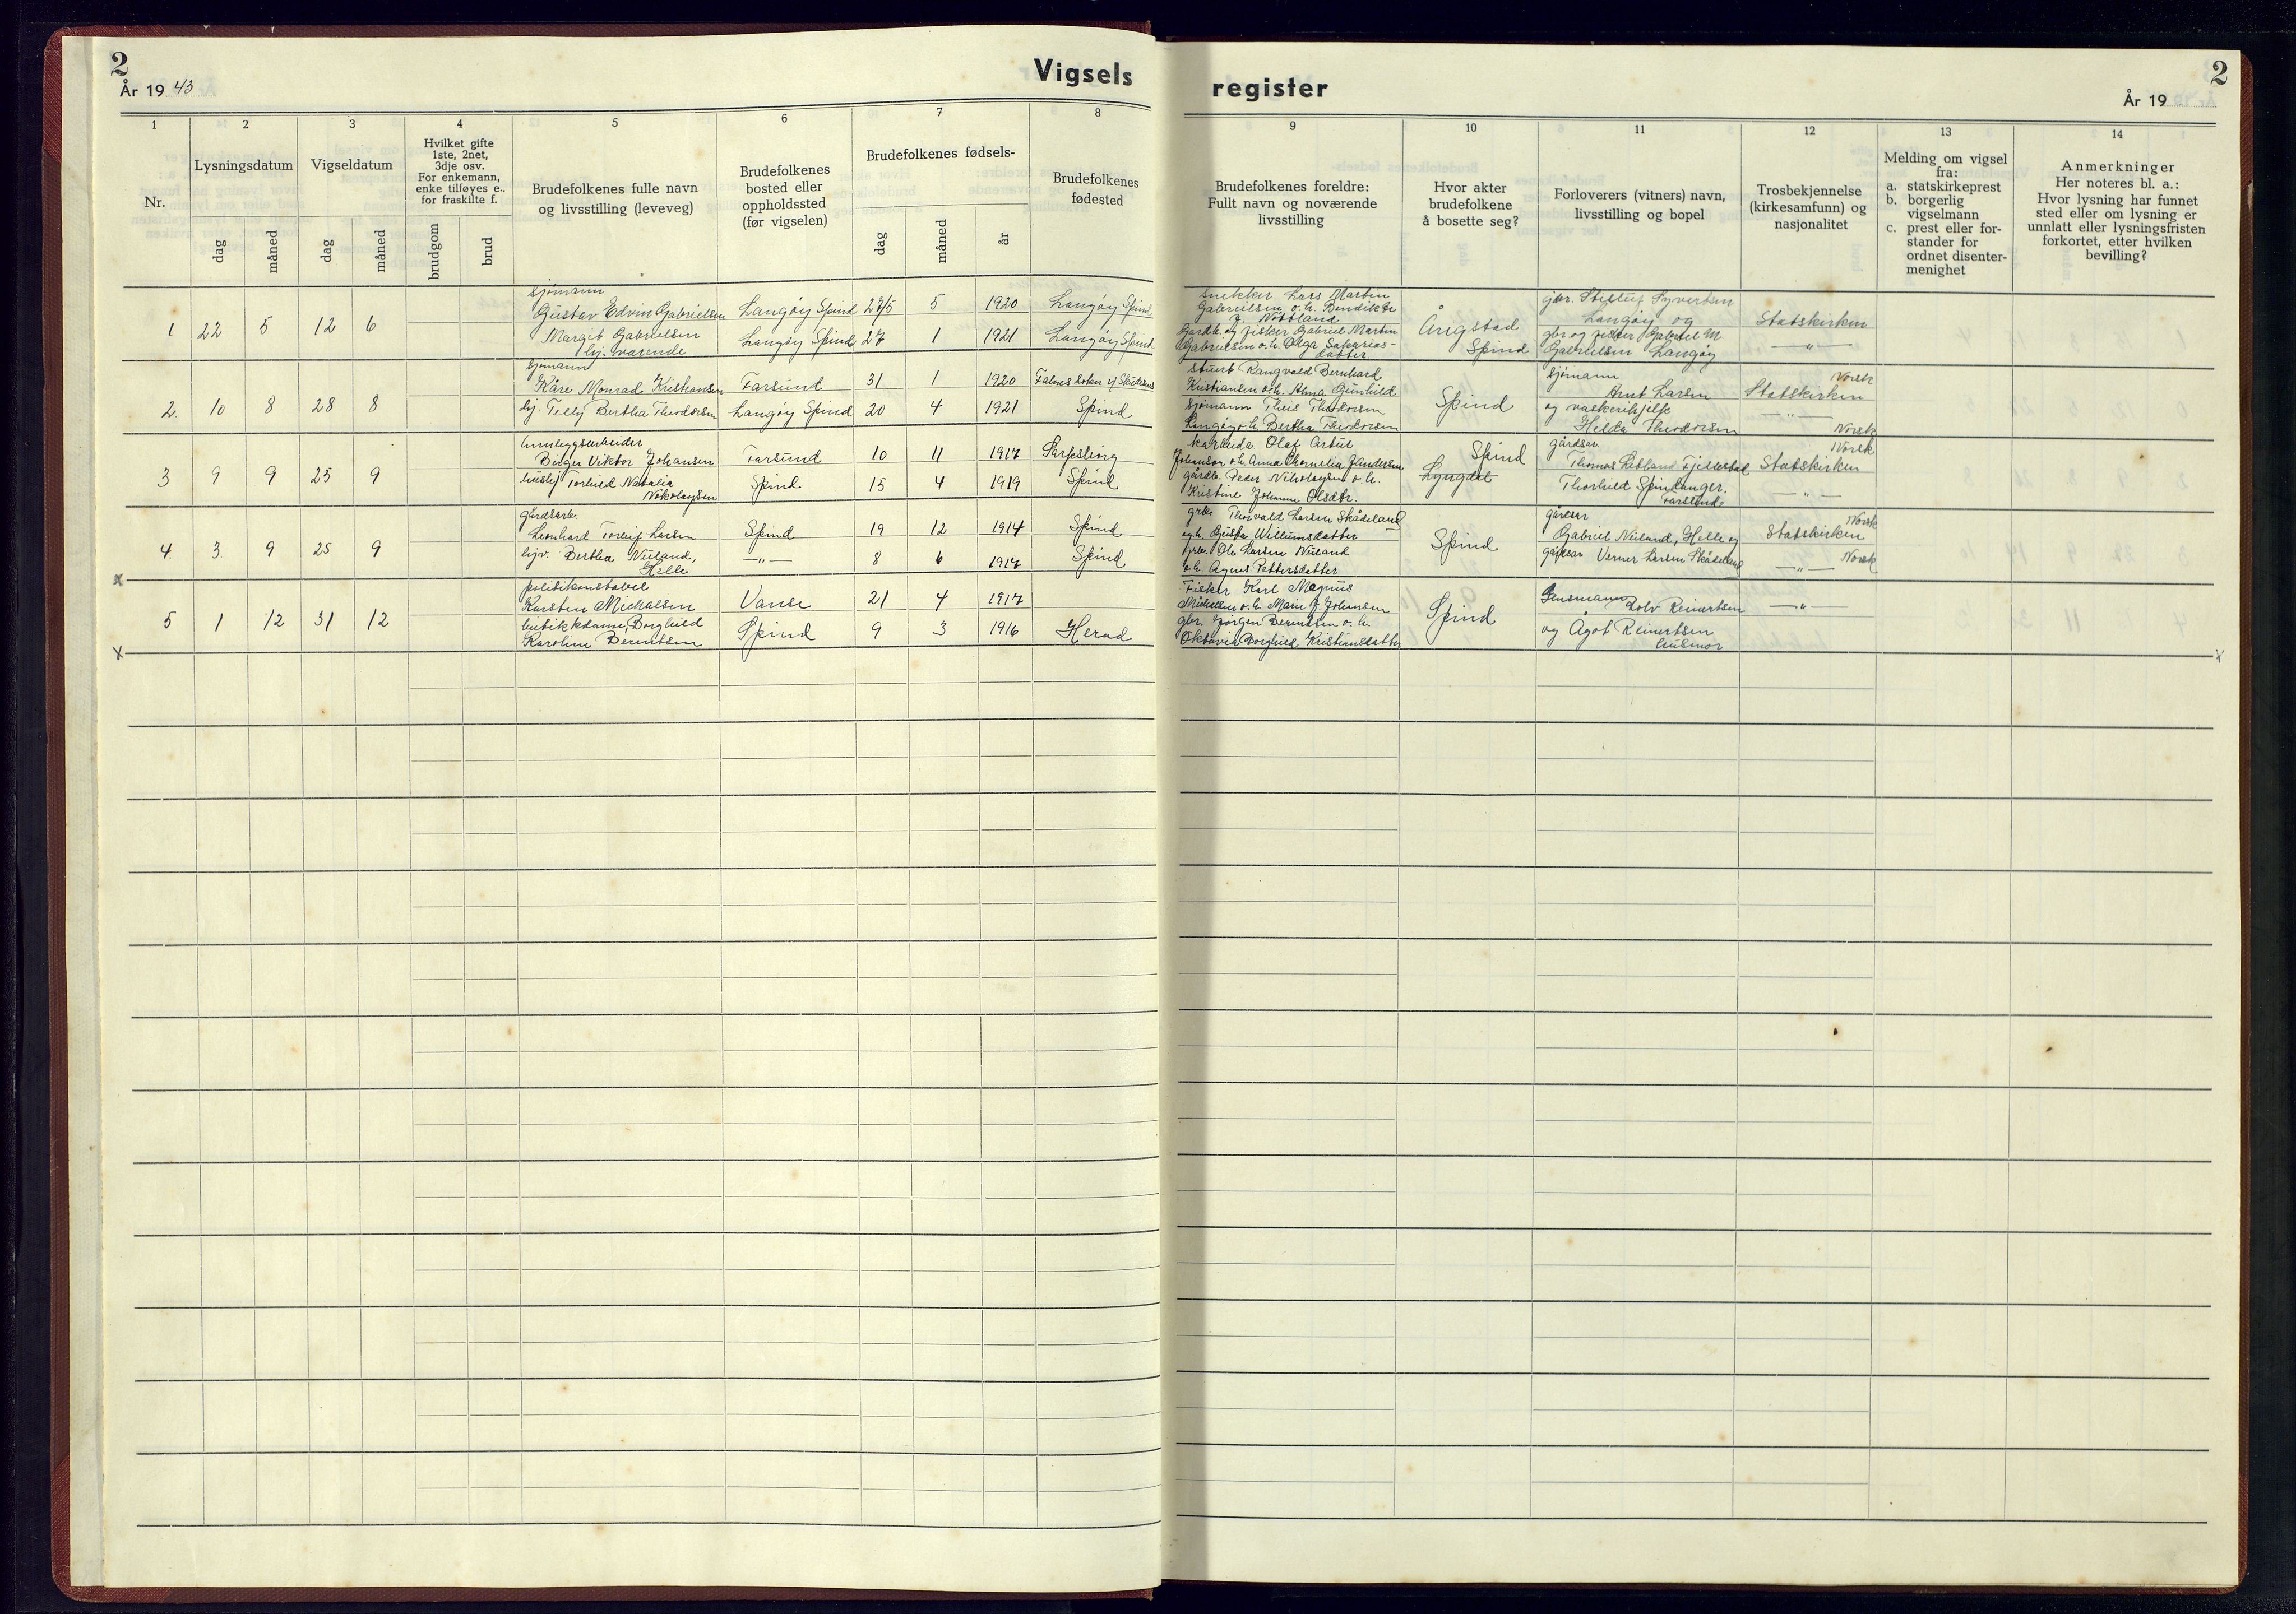 2
År 19 43
Vigsels
register
2
År 19
1
2
3
4
5
6
7
8
9
10
11
12
13
14
Nr.
Lysningsdatum
dag
måned
Vigseldatum
dag
måned
Hvilket gifte
1ste, 2net,
3dje osv.
For enkemann,
enke tilføyes e.,
for fraskilte f.
brudgom
brud
Brudefolkenes fulle navn
og livsstilling (leveveg)
Brudefolkenes
bosted eller
oppholdssted
(før vigselen)
Brudefolkenes fødsels-
dag
måned
år
Brudefolkenes
fødested
Brudefolkenes foreldre:
Fullt navn og noværende
livsstilling
Hvor akter
brudefolkene
å bosette seg?
Forloverers (vitners) navn,
livsstilling og bopel
Trosbekjennelse
(kirkesamfunn) og
nasjonalitet
Melding om vigsel
fra:
a. statskirkeprest
b. borgerlig
vigselmann
c. prest eller for-
stander for
ordnet disenter-
menighet
Anmerkninger
Her noteres bl. a.:
Hvor lysning har funnet
sted eller om lysning er
unnlatt eller lysningsfristen
forkortet, etter hvilken
bevilling?
1 22 5 12 6
sjømann
Gustav Edvin Gabrielsen Langøy Spind 27/5 5 1920 Langøy Spind
Margit Gabrielsen Langøy Spind 27 1 1921 Langøy Spind
hj. værende
snekker Lars Martin
Gabrielsen o.h. Bendikte
J. Nottland
Gardb. og fisker Gabriel Martin
Gabrielsen o.h. Olga Sakarias-
datter
Ångstad
Spind
gbr. Syvertsen
Langøy og
gbr og fisker Gabriel M.
Gabrielsen Langøy
Statskirken
— " —
2. 10 8 28 8
sjømann
Kåre Monrad Kristiansen Farsund 31 1 1920 Falnes sokn v/ Skudesnes
hj. Telly Bertha Theodorsen Langøy Spind 20 4 1921 Spind
stuert Rangvald Bernhard
Kristiansen o.h. Alma Gunhild
sjømann Theis Theodorsen
Langøy o.h. Bertha Theodorsen
Spind
sjømann
Arnt Larsen
og vaskerihjelp
Helda Theodorsen
Norsk
Statskirken
— " —
Norsk
3 9 9 25 9
Annleggsarbeider
Birger Viktor Johansen Farsund 10 11 1917 Sarpsborg
huslig Torhild Natalia
Nikolaysen Spind 15 4 1919 Spind
Olaf
Johanson o.h. Anna Andersen
gårdb. Peder Nikolaysen o.h.
Kristine Johanne Olsdtr.
Spind
Lyngdal
gårdsar
Thomas Fjellestad
Thorhild Spindanger.
Farsund.
Norsk
Statskirken
— " —
4. 3. 9 25 9
gårdsarb.
Leonhard Torleif Larsen Spind 19 12 1914 Spind
hjv. Bertha Nuland,
Helle — " — 8 6 1917 Spind
grb. Thorvald Larsen Skådeland
og h. Gusta Willumsdatter
grb. Ole Larsen Nuland
o.h. Agnes Pettersdatter
Spind
gårdsar
Gabriel Nuland, Helle og
gårdsar Verner Larsen Skådeland
Norsk
Statskirken
— " — Norsk
x
5 1 12 31 12
politikonstabel
Karsten Mickalsen Vanse 21 4 1917
butikkdame, Borghild
Karoline Berentsen Spind 9 3 1916 Herad
Fisker Karl Magnus
Mickelsen o.h. Marie J. Johansen
gbr. Jørgen Berentsen o.h.
Oktavia Borghild Kristiansdatter
Spind
Lensmann Rolv Reinertsen
og Ågot Reinertsen
husmor
— " —
x
x